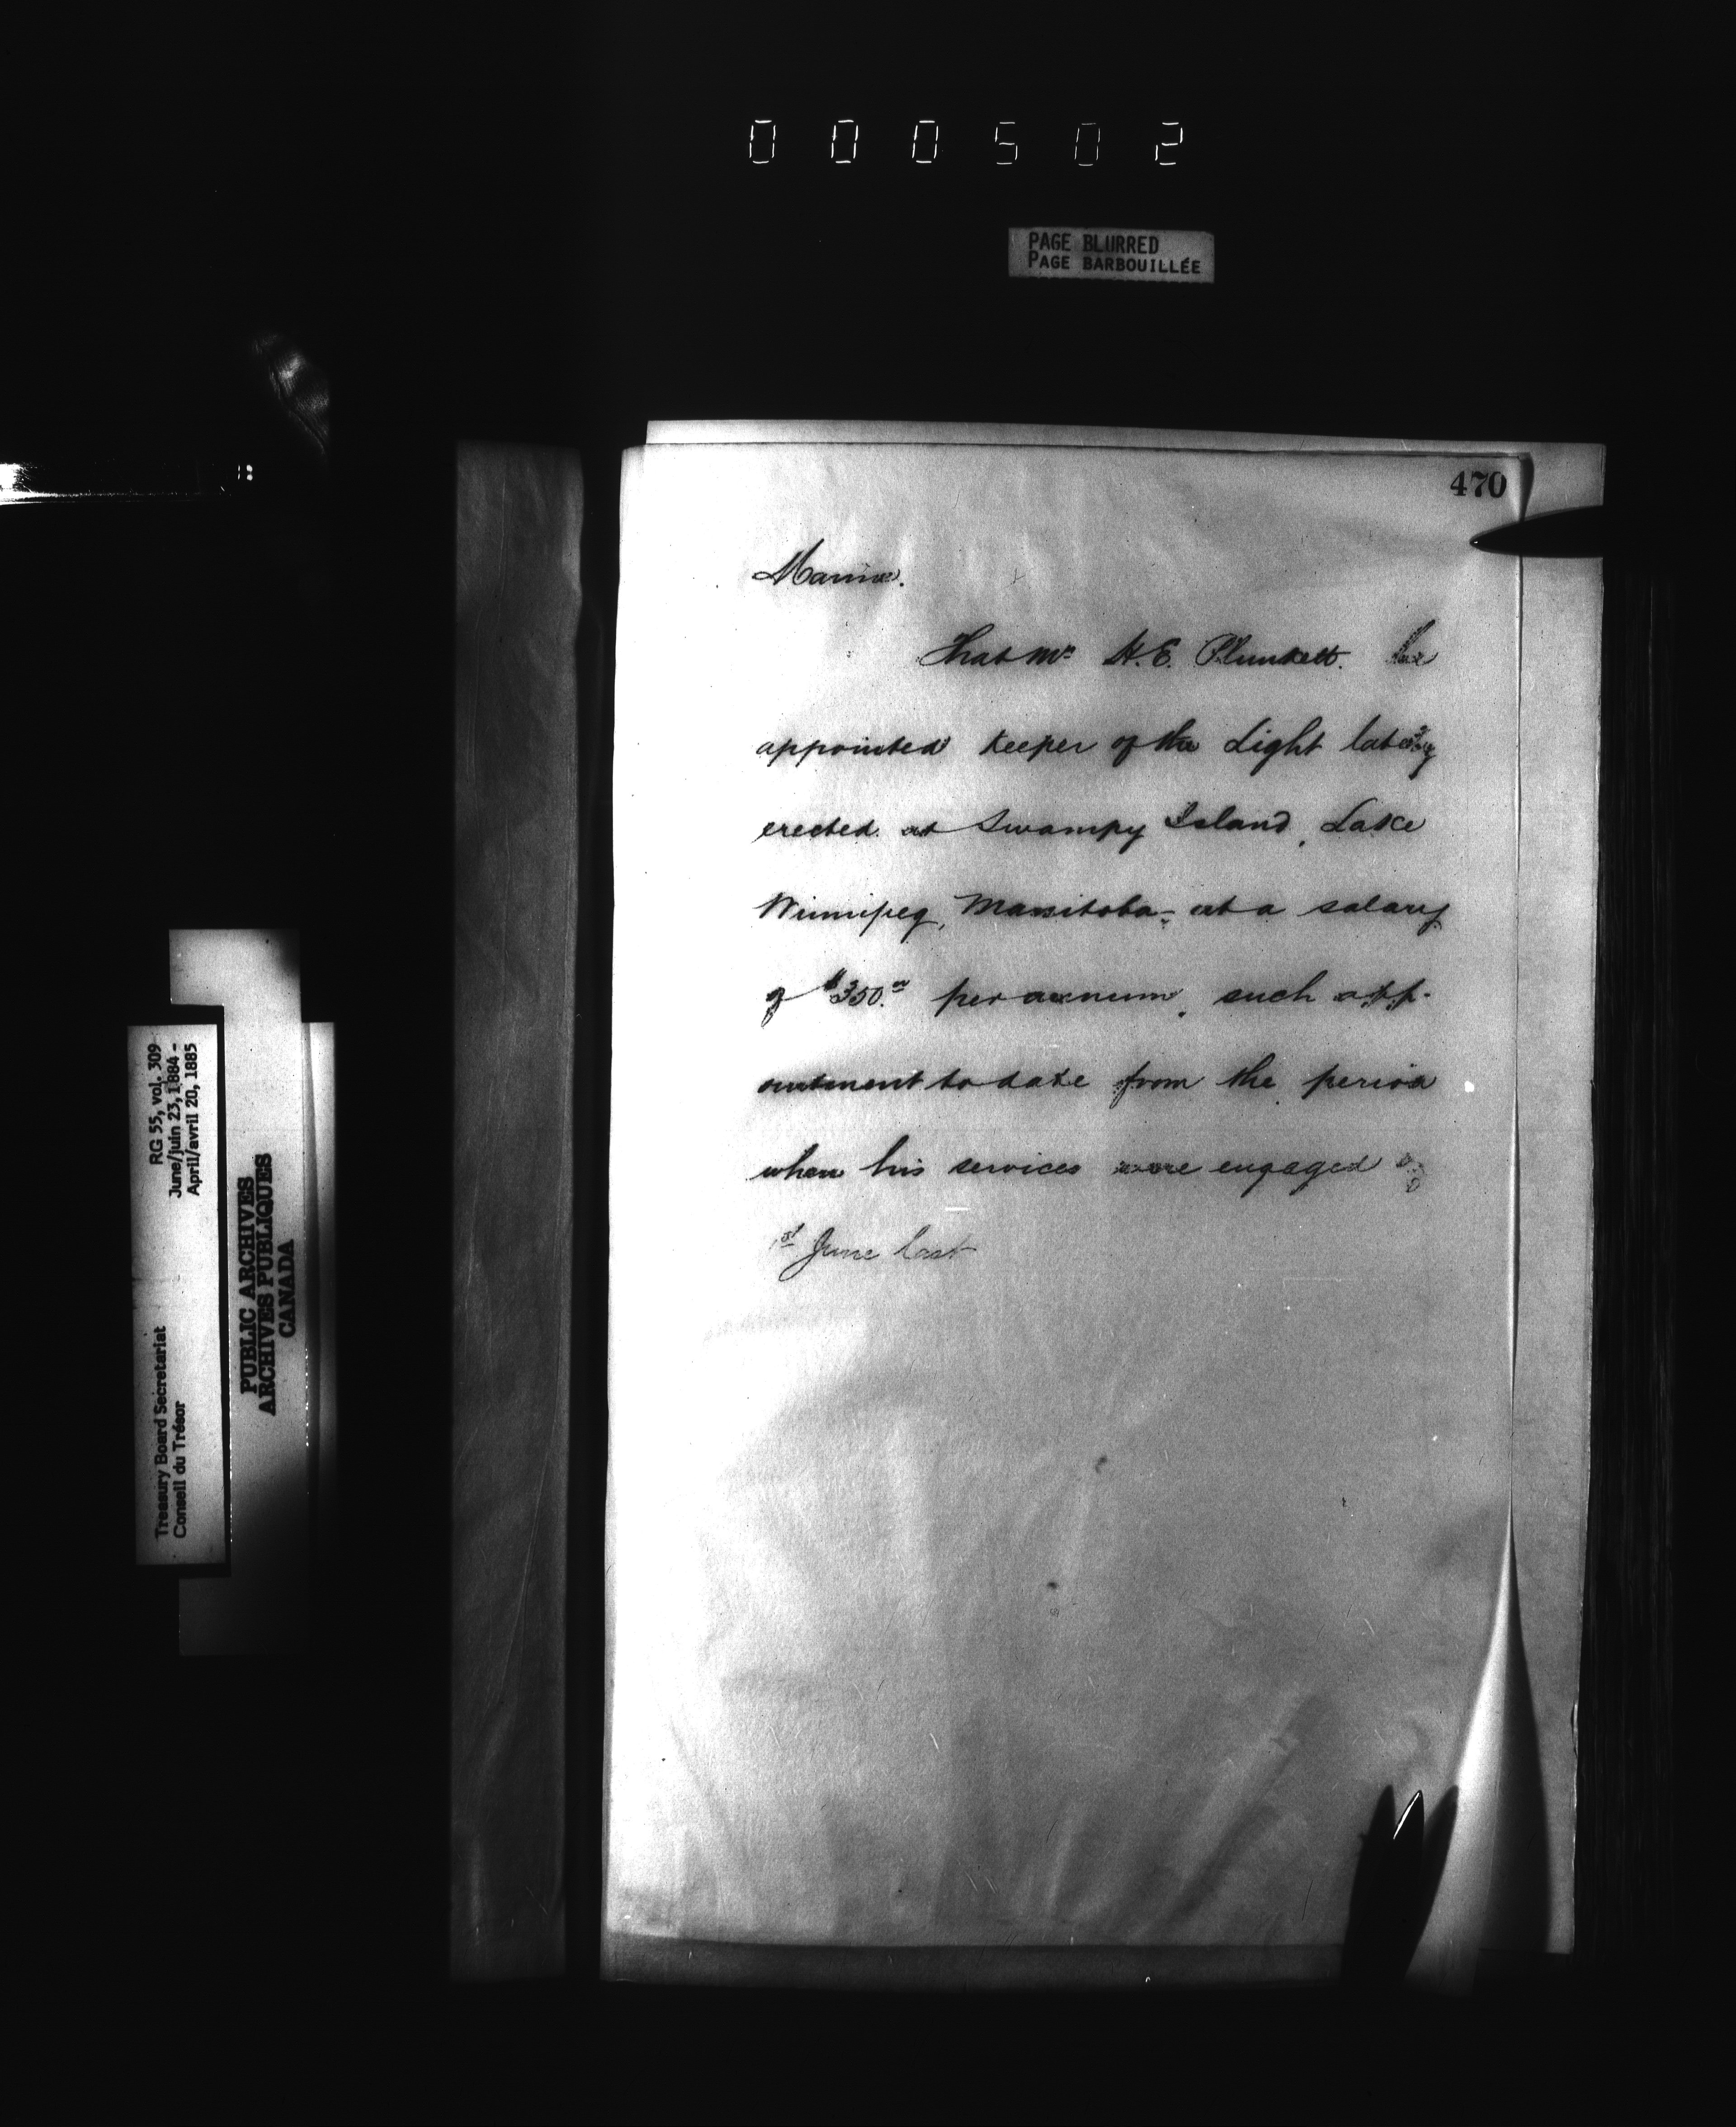 000502
PAGE BLURRED
PAGE BARBOUILLÉE
470
Marine.
That Mr H. E. Plunkett. be
appointed Keeper of the Light lately
erected at Swampy Island, Lake
Winnipeg, Manitoba - at a salary
of $350.00 per annum, such app-
ointment to date from the period
when his services were engaged
1st June last
RG 55, vol. 309
June/juin 23, 1884 -
April/avril 20, 1885
Treasury Board Secretariat
Conseil du Trésor
PUBLIC ARCHIVES
ARCHIVES PUBLIQUES
CANADA